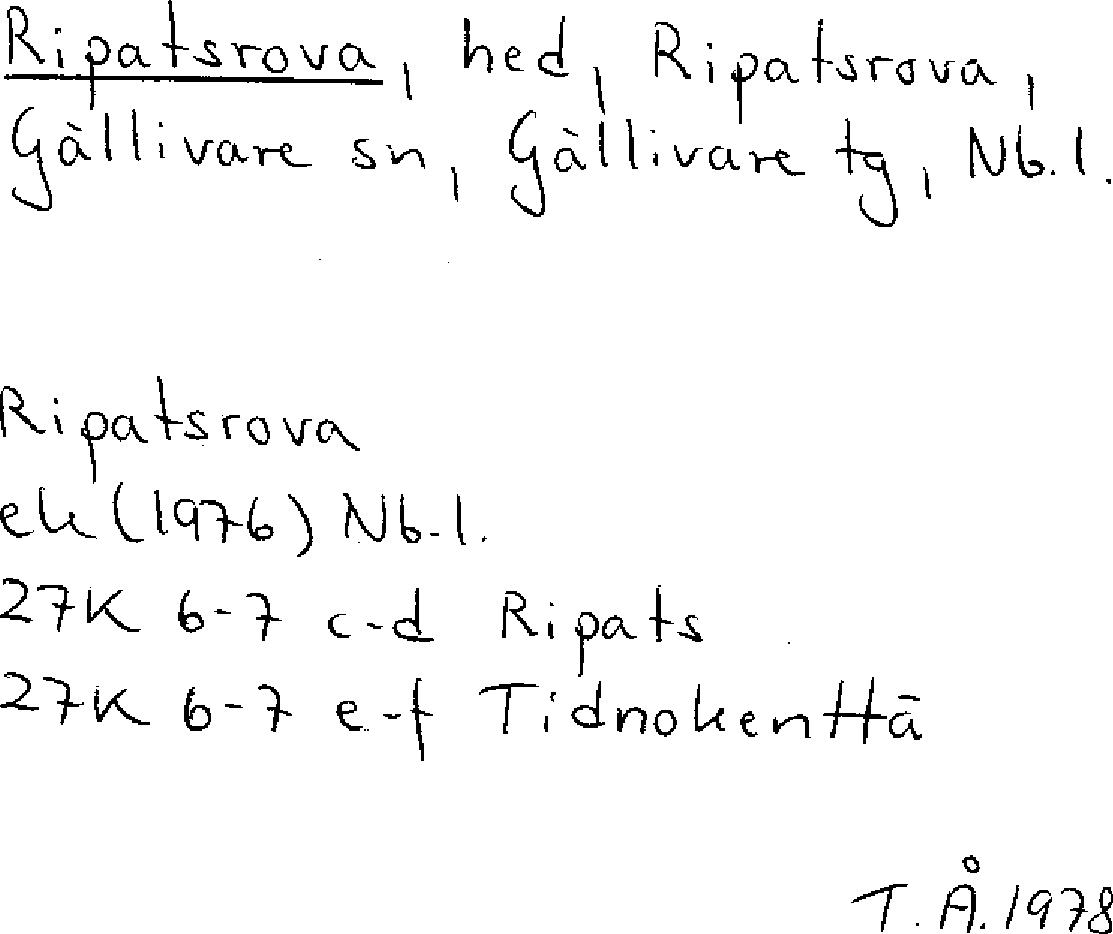 Ripatsrova, hed, Ripatsrova,
Gällivare sn, Gällivare tg, Nb.l.
Ripatsrova
ek (1976) Nb.l.
27K 6-7 c-d Ripats
27K 6-7 e-f Tidnokenttä
T.Å. 1978